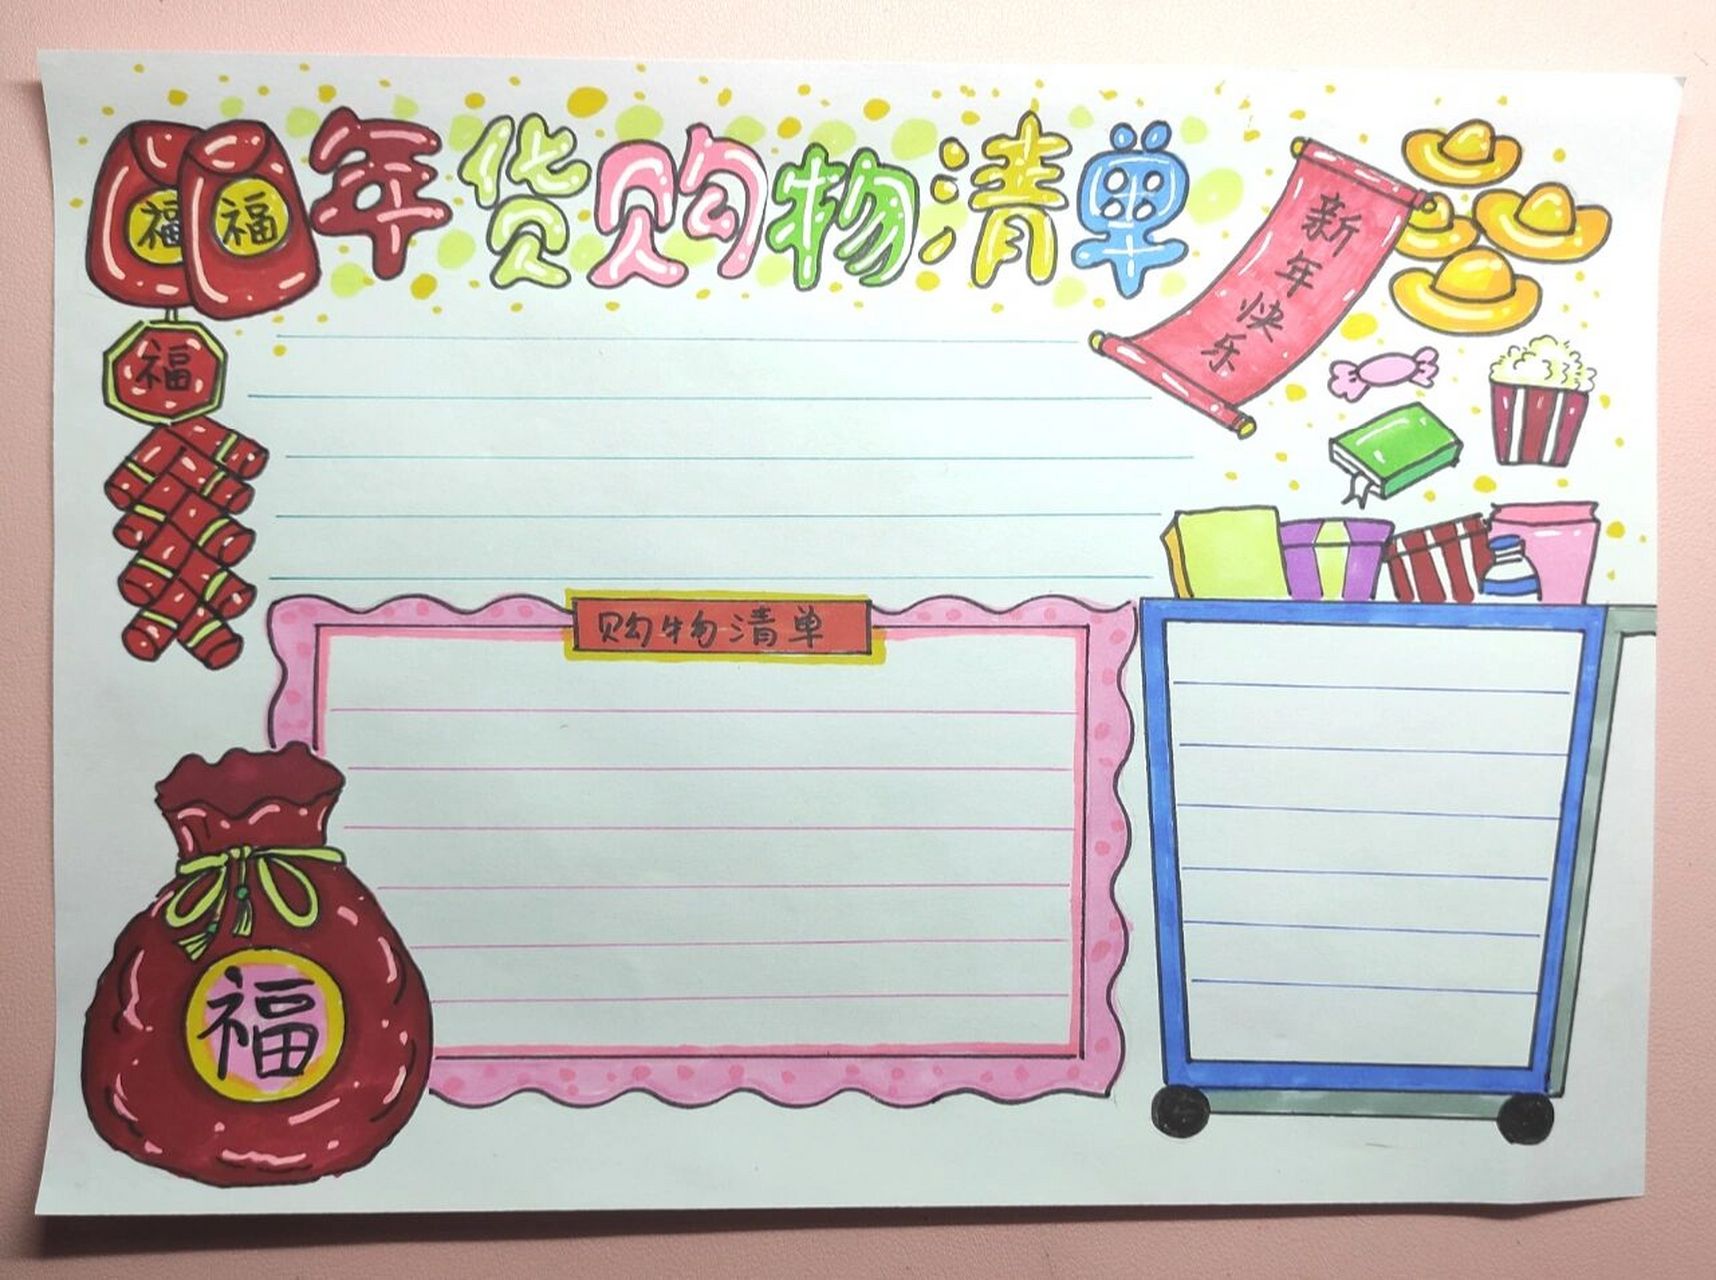 年货购物清单
福
福
福
新年快乐
购物清单
福